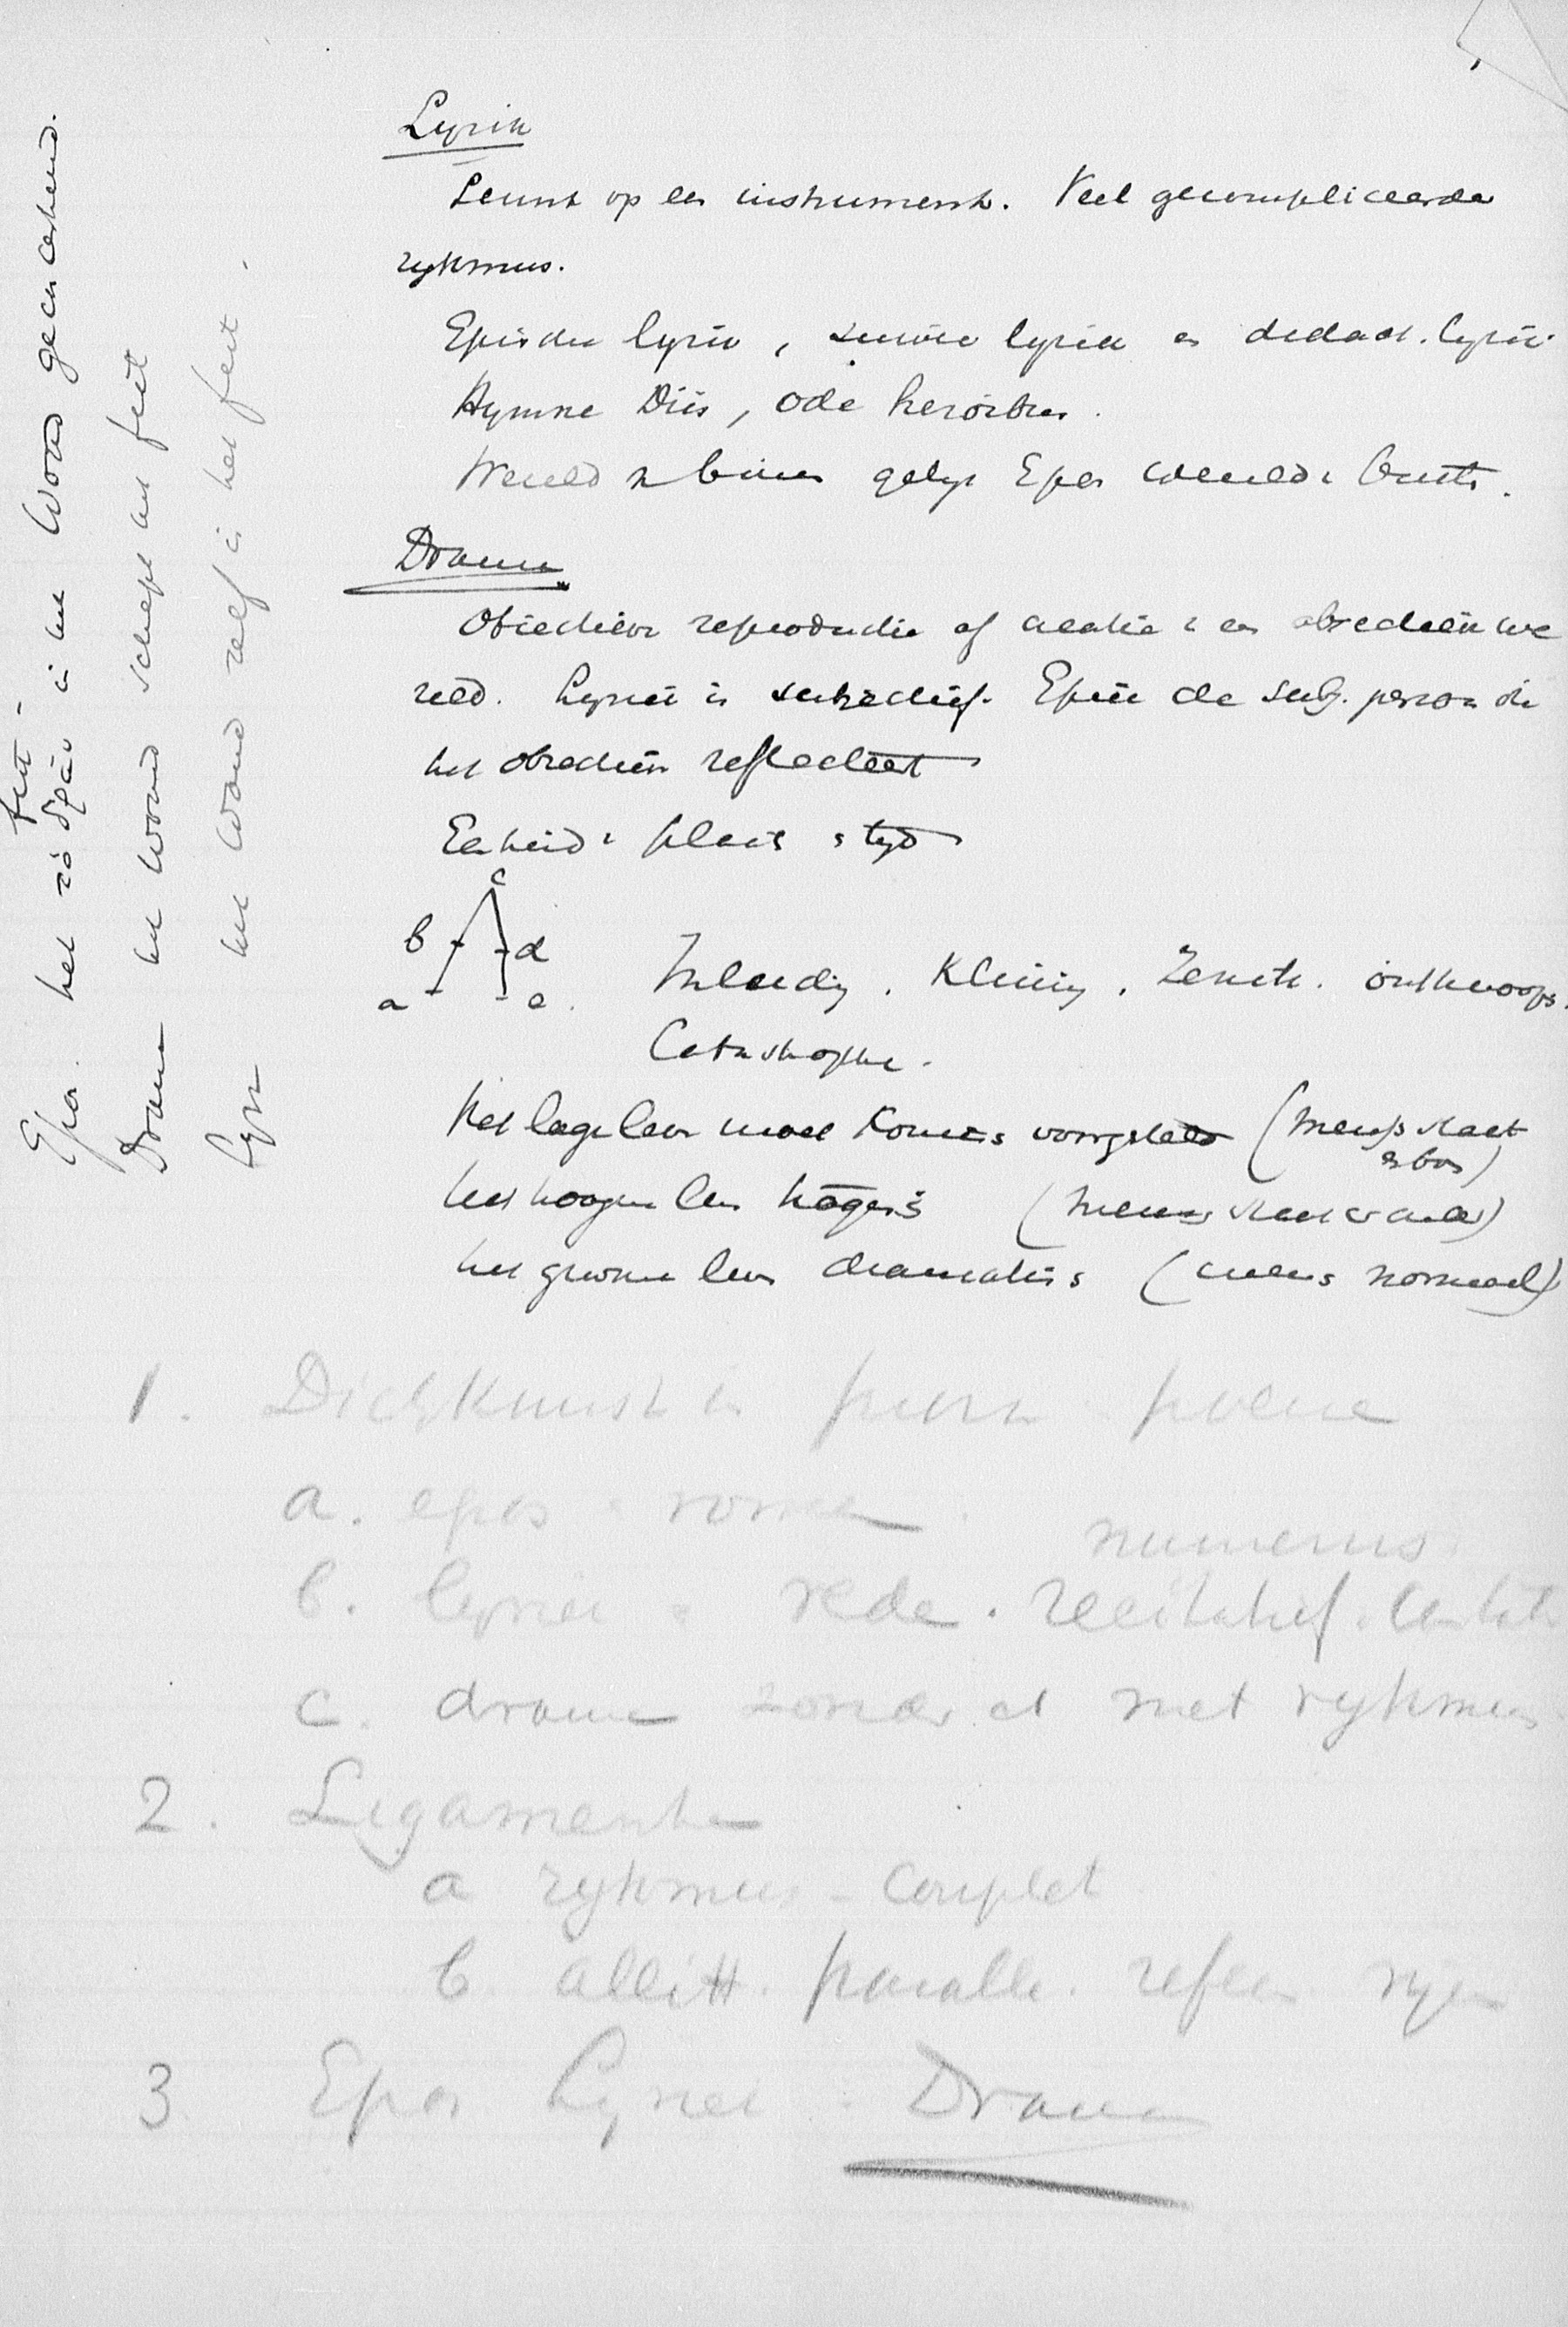 Lyriek
Leunt op een instrument. Veel gecompliceerder
rythmus.
Epische lyriek, lyriek en didact. lyriek
Hymne Diis, ode heroibus.
Wereld binnen gelijk Epos wereld buiten.
Drama
Objectieve reproductie of creatie v een objectieve we
reld. Lyriek is subjectief. Epiek de subj. persoon die
het objectieve reflecteert
Eenheid v plaats & tijd
c
b d
a e.
Inleiding. Klimming. Zenith. ontknooping.
Catastrophe.
Het lage leven moet komisch voorgesteld (mensch staat
er boven)
het hoogere leven tragisch (mensch staat er onder)
het gewone leven dramatisch (mensch normaal)
Epos. het feit is in het woord gecacheerd.
Drama het woord schept het feit
Lyr het woord zelf is het feit.
1. Dichtkunst en proza poezie
a. epos - roman
numerus.
b. lyriek = rede. recitatief.
c. drama zonder et met rythmus
2. Ligamenten
a rythmus - couplet
b. allitt. paralle. refrein rijm
3 Epos Lyriek : Drama